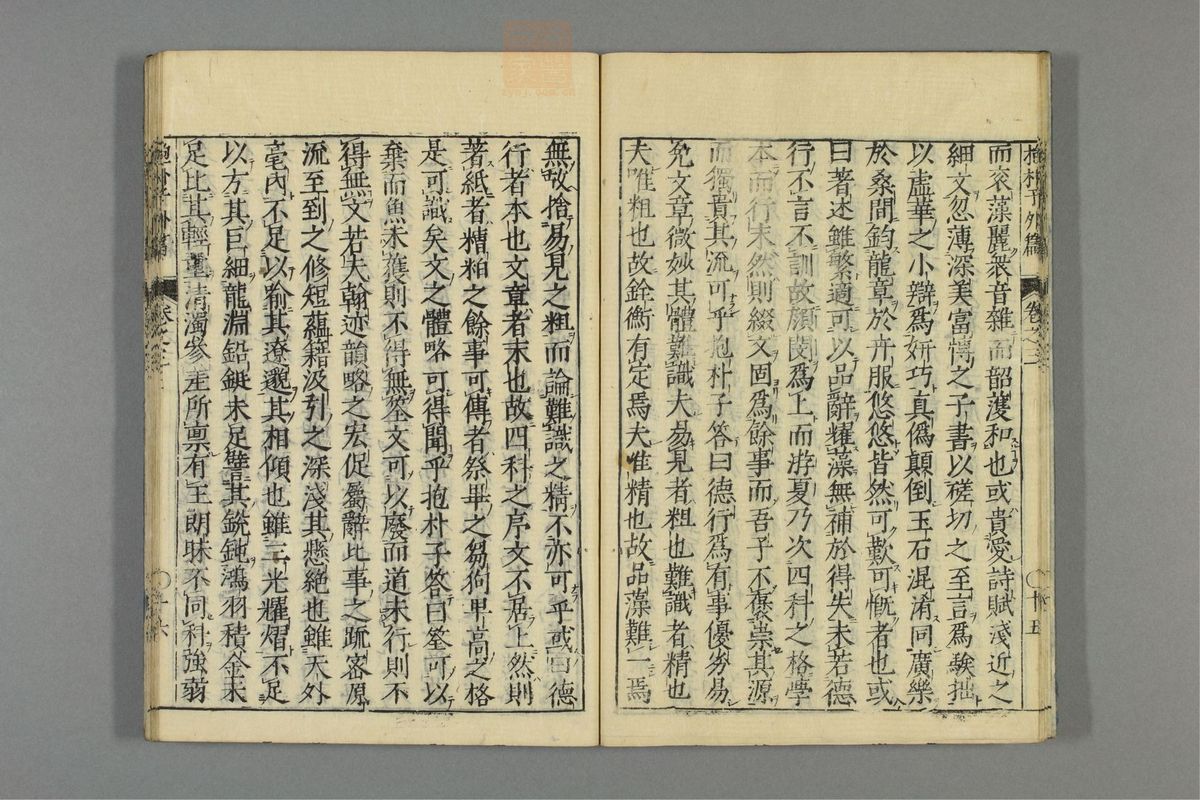 抱朴子外篇 卷之三 十五
而衮藻麗衆音雜而韶護和也或貴愛詩賦淺近之
細文忽薄深美富愽之子書以磋切之至言爲騃拙
以虛華之小辯爲妍巧真僞顛倒玉石混淆同廣樂
於桑間鈞龍章於卉服悠悠皆然可歎可慨者也或
曰著述雖繁適可以品辭耀藻無補於得失未若德
行不言不訓故顔閔爲上而游夏乃次四科之格學
本而行末然則綴文固爲餘事而吾子不襃崇其源
而獨貴其流可乎抱朴子答曰德行爲有事優劣易
免文章微妙其體難識夫易見者粗也難識者精也
夫唯粗也故銓衡有定焉夫唯精也故品藻難一焉
無故捨易見之粗而論難識之精不亦可乎或曰德
行者本也文章者末也故四科之序文不居上然則
著紙者糟粕之餘事可傳者祭畢之芻狗卑高之格
是可識矣文之體略可得聞乎抱朴子答曰筌可以
棄而魚未獲則不得無筌文可以廢而道未行則不
得無文若夫翰迹韻略之宏促屬辭比事之疏密原
流至到之修短蘊籍汲引之深淺其懸絶也雖天外
毫內不足以喻其遼邈其相傾也雖三光熠耀不足
以方其巨細龍淵鉛鋌未足譬其銳鈍鴻羽積金未
足比其輕重清濁參差所禀有主朗昧不同科強弱
抱朴子外篇 卷之三 十六